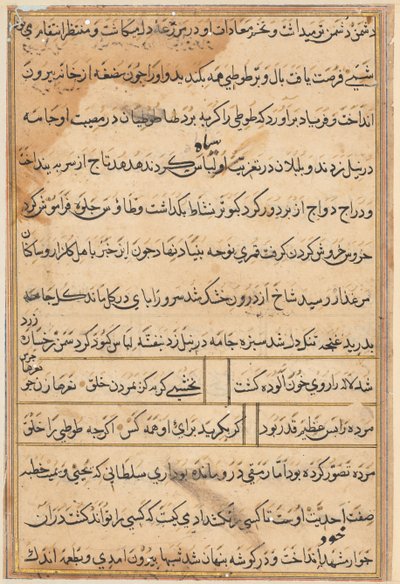 دشمن دشمن تو میداشت و تخم معادات او در مزرعه دل میکاشت و منتظر انتقام می
شبی فرصت یافت بال و پر طوطی همه بکندید و او را چون مضغه از خانه بیرون
انداخت و فریاد براورد که طوطی را کربه برد طوطیان در مصیبت او جامه
در نیل زدند و بلبلان در تعزیت او لباس سیاه کردند هدهد تاج از سر بینداخت
و دراج دواج از بر دور کرد کبوتر نشاط بکذاشت و طاوس جلوه فراموش کرد
خروس خروش کردن کرفت قمری نوحه بنیاد نهاد چون این خبر باهل کلزار و ساکنان
مرغزار رسید شاخ از درون خشک شد سرو را پای در کل ماند کل جامه
بدرید غنچه تنک دل شد سبزه جامه در نیل زد بنفشه لباس کبود کرد سمن رخساره زرد
شد لاله را روی خون آلوده کشت نخشبی کریه کن بمردن خلق نعرها زن چو نعرهای جرس
مرده را بس عظیم قدر بود کر بکرید برای او همه کس اکرچه طوطی را خلق
مرده تصور کرده بود اما رمقی درو مانده بود سلطانی که یحیی و یمیت خطبه
صفت احدیت اوست تا کسی را نکشد ادمی کیست که کسی را تواند کشت دران
جوار مشهد خود انداخت و در کوشه پنهان شد شبها بیرون آمدی و طعمه اندک